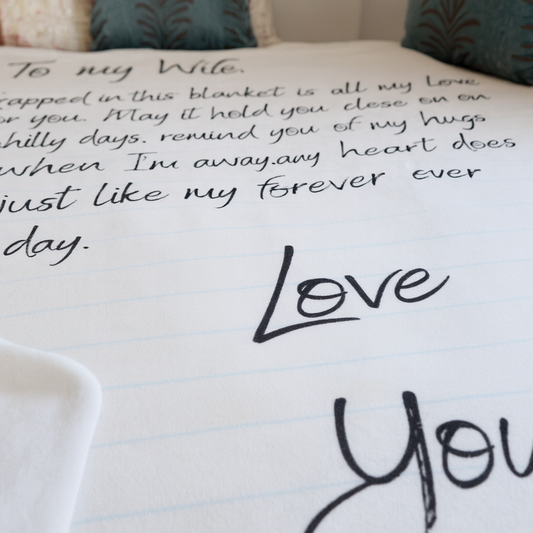 To my Wife.
rapped in this blanket is all my Love
or you. May it hold you close on on
hilly days. remind you of my hugs
when I'm away.any heart does
just like my forever ever
day.
Love
You